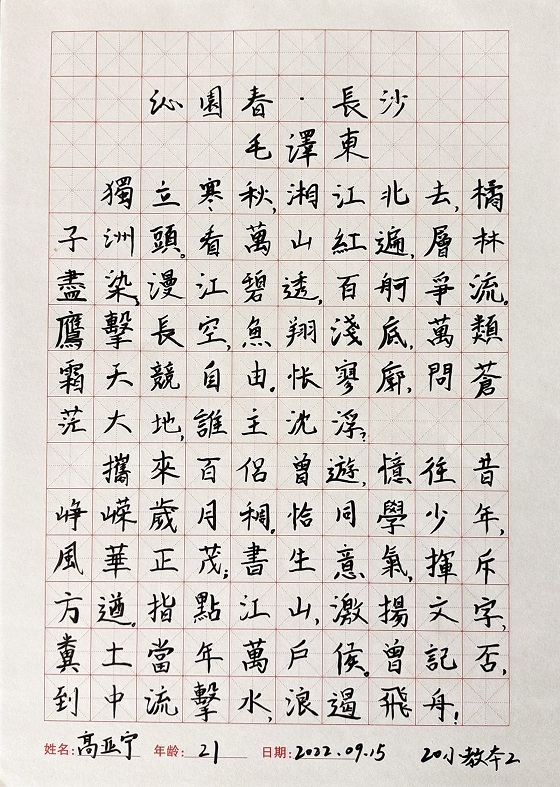 沁園春·長沙
毛澤東
獨立寒秋,湘江北去,橘
子洲頭。看萬山紅遍,層林
盡染,漫江碧透,百舸爭流。
鷹擊長空,魚翔淺底,萬類
霜天競自由。悵寥廓,問蒼
茫大地,誰主沈浮?
攜來百侶曾遊,憶往昔
崢嶸歲月稠。恰同學少年,
風華正茂;書生意氣,揮斥
方遒。指點江山,激揚文字,
糞土當年萬戶侯。曾記否,
到中流擊水,浪遏飛舟!
姓名:高亚宁 年龄:21 日期:2022.09.15 20小教本2